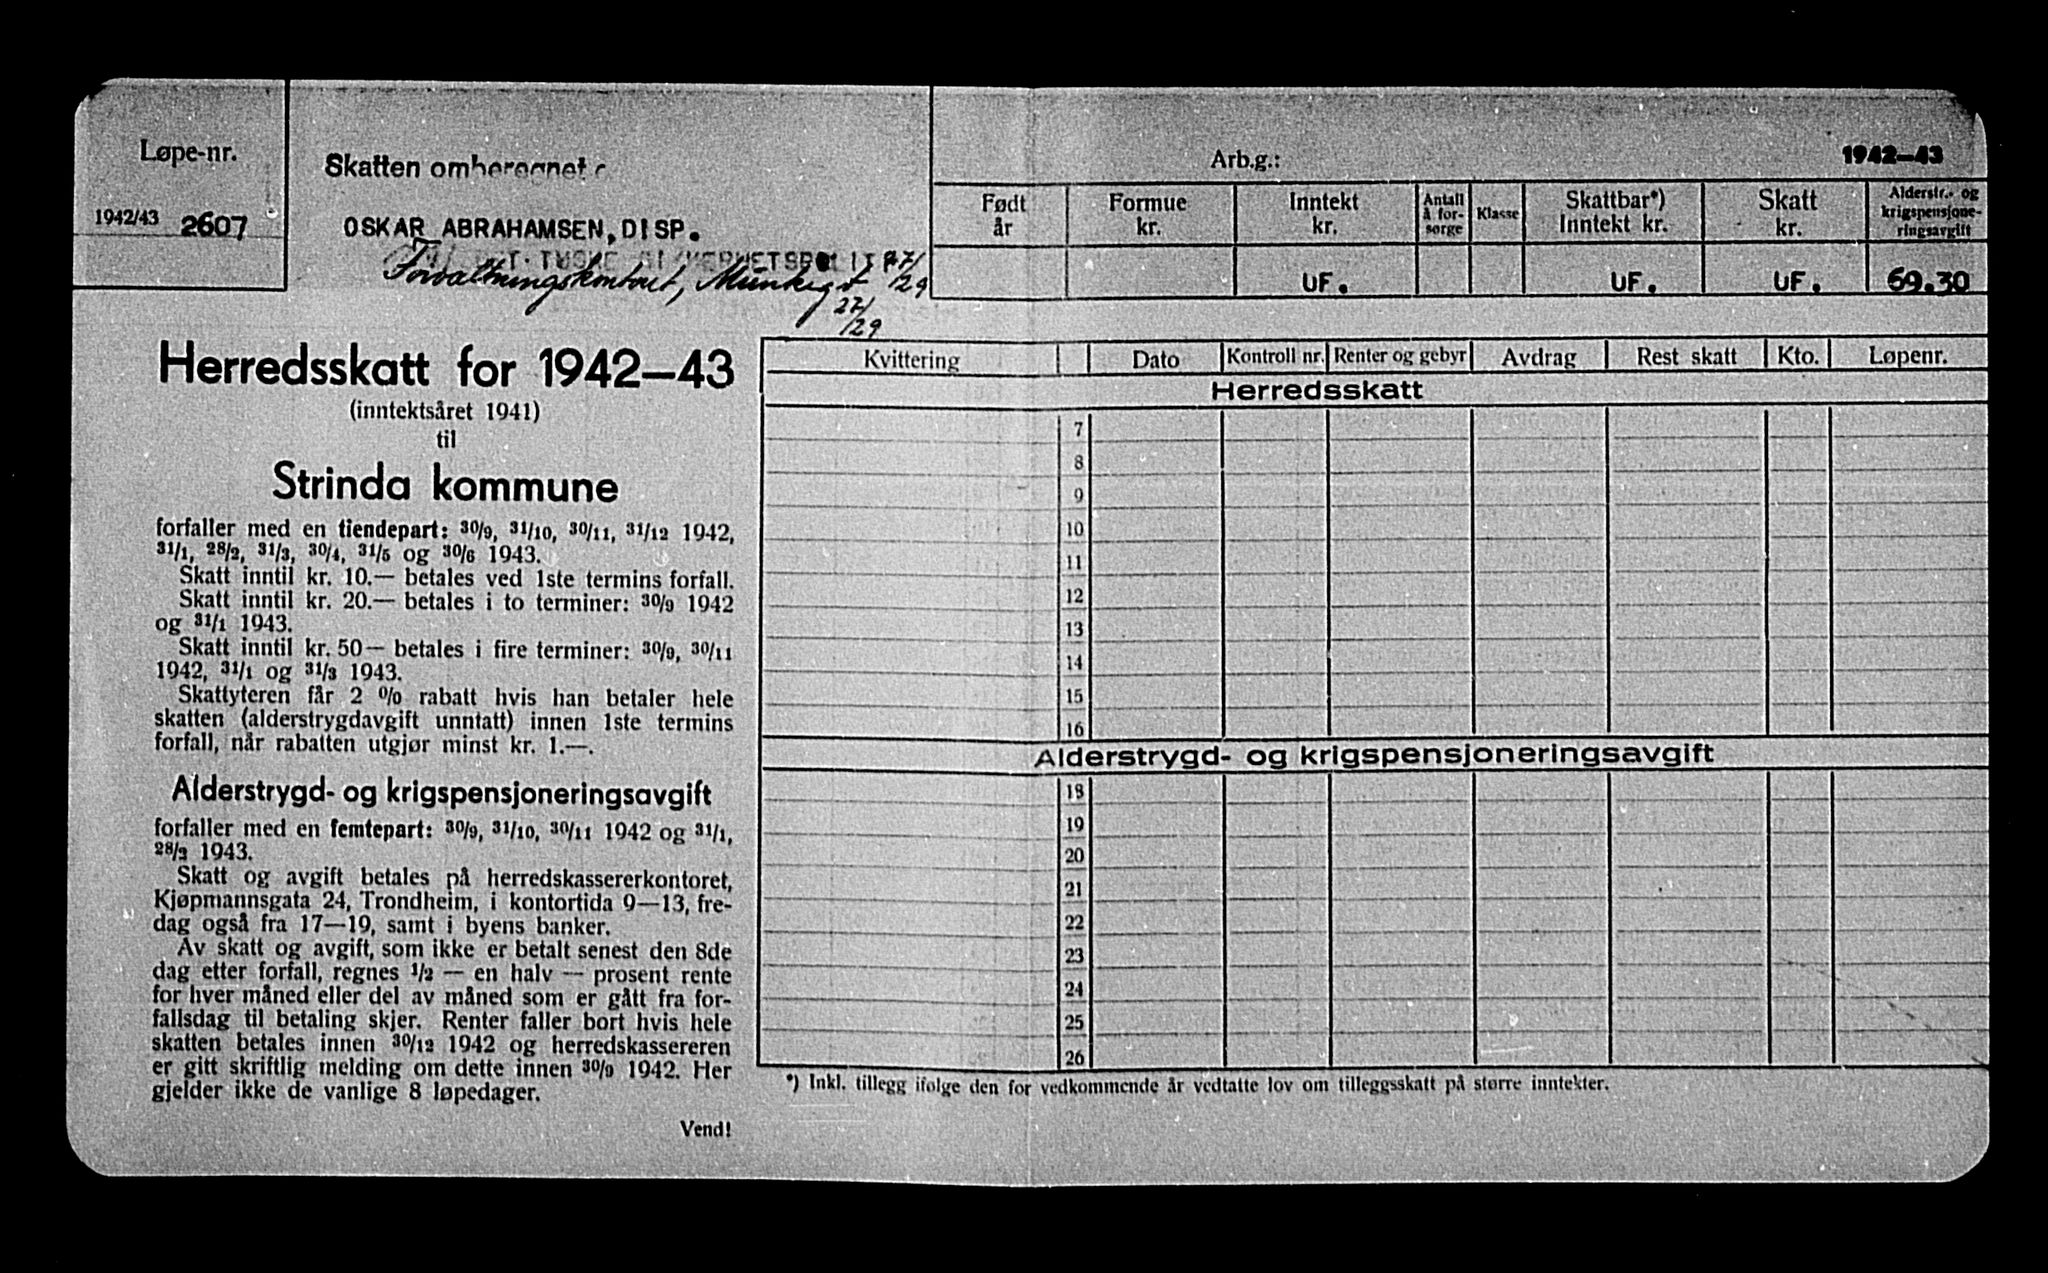 Løpe-nr.
1942/43 2607
Skatten omberegnet
OSKAR ABRAHAMSEN, DISP.
Forvaltningskontoret, Munkegt
27/29
Arb.g.: 1942—43
Født år
Formue kr.
Inntekt kr.
Antall å forsørge
Klasse
Skattbar*) Inntekt kr.
Skatt kr.
Alderstr.- og krigspensjoneringsavgift
UF. UF. UF. 69.30
Herredsskatt for 1942—43
(inntektsåret 1941)
til
Strinda kommune
forfaller med en tiendepart: 30/9, 31/10, 30/11, 31/12 1942,
31/1, 28/2, 31/3, 30/4, 31/5 og 30/6 1943.
Skatt inntil kr. 10.— betales ved 1ste termins forfall.
Skatt inntil kr. 20.— betales i to terminer: 30/9 1942
og 31/1 1943.
Skatt inntil kr. 50— betales i fire terminer: 30/9, 30/11
1942, 31/1 og 31/3 1943.
Skattyteren får 2 % rabatt hvis han betaler hele
skatten (alderstrygdavgift unntatt) innen 1ste termins
forfall, når rabatten utgjør minst kr. 1.—.
Alderstrygd- og krigspensjoneringsavgift
forfaller med en femtepart: 30/9, 31/10, 30/11 1942 og 31/1,
28/2 1943.
Skatt og avgift betales på herredskassererkontoret,
Kjøpmannsgata 24, Trondheim, i kontortida 9—13, fre-
dag også fra 17—19, samt i byens banker.
Av skatt og avgift, som ikke er betalt senest den 8de
dag etter forfall, regnes 1/2 — en halv — prosent rente
for hver måned eller del av måned som er gått fra for-
fallsdag til betaling skjer. Renter faller bort hvis hele
skatten betales innen 30/12 1942 og herredskassereren
er gitt skriftlig melding om dette innen 30/9 1942. Her
gjelder ikke de vanlige 8 løpedager.
Vend!
Kvittering Dato Kontroll nr. Renter og gebyr Avdrag Rest skatt Kto. Løpenr.
Herredsskatt
7
8
9
10
11
12
13
14
15
16
Alderstrygd- og krigspensjoneringsavgift
18
19
20
21
22
23
24
25
26
*) Inkl. tillegg ifølge den for vedkommende år vedtatte lov om tilleggsskatt på større inntekter.